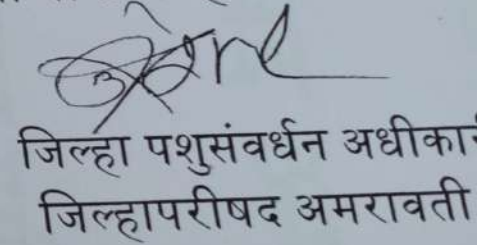 जिल्हा पशुसंवर्धन अधीकारी
जिल्हापरीषद अमरावती